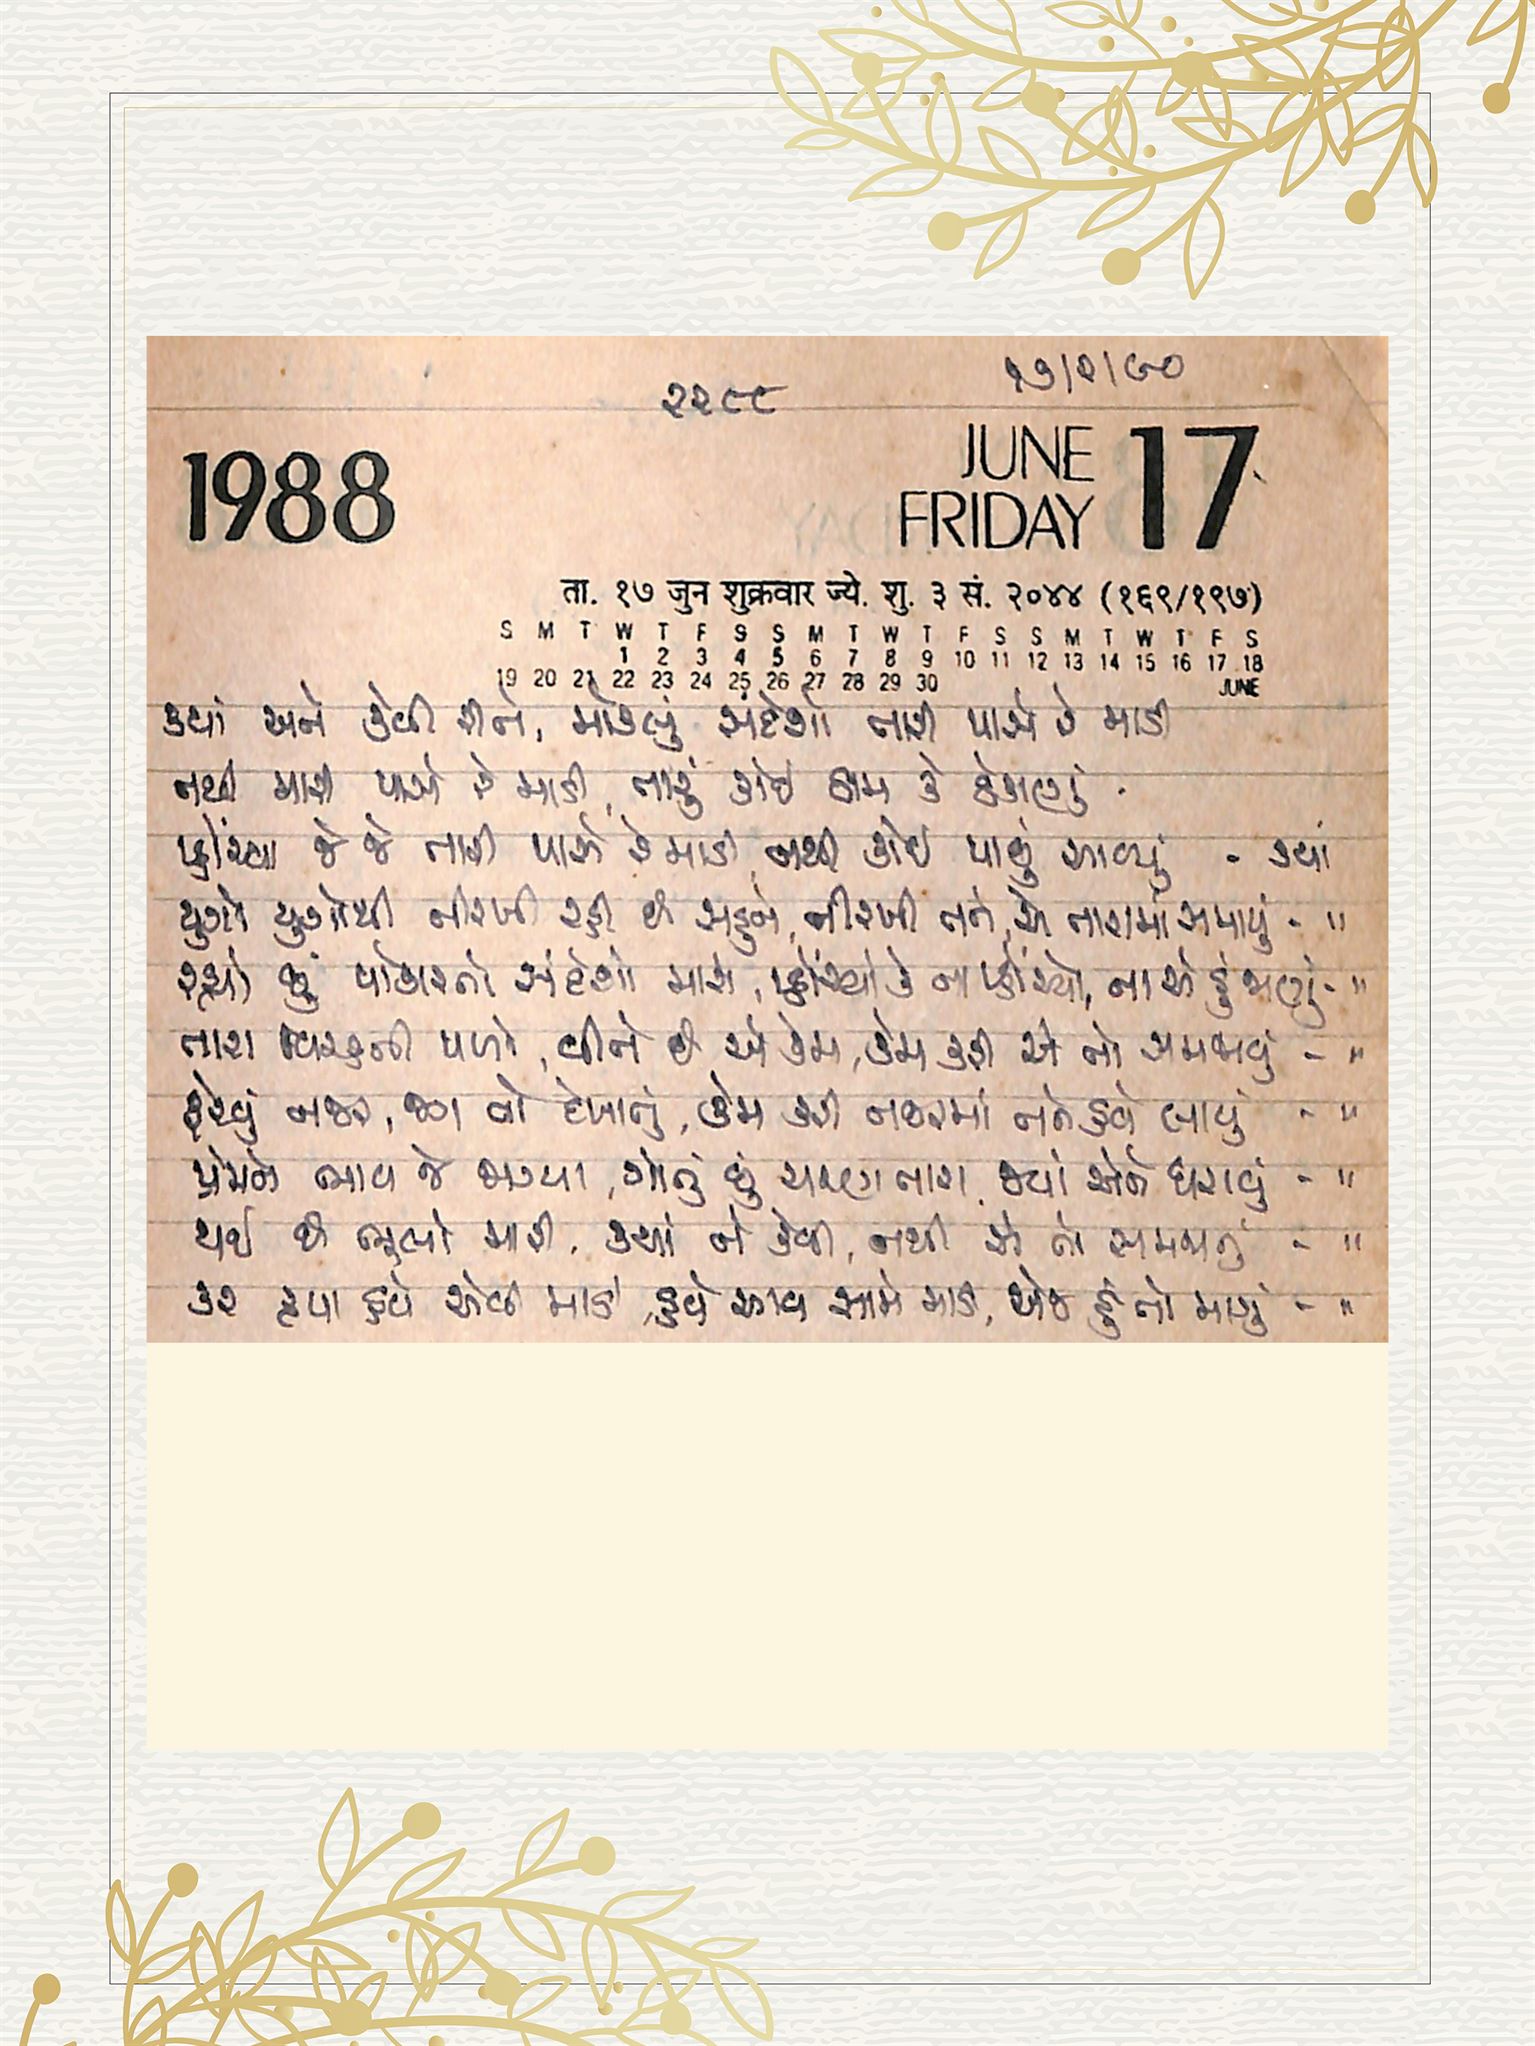 ૧૭/૨/૯૦
૨૨૯૯
1988
JUNE 17
FRIDAY
ता. १७ जुन शुक्रवार ज्ये. शु. ३ सं. २०४४ (१६९/१९७)
S M T W T F S S M T W T F S S M T W T F S
1 2 3 4 5 6 7 8 9 10 11 12 13 14 15 16 17 18
19 20 21 22 23 24 25 26 27 28 29 30 JUNE
ક્યાં અને કેવી રીતે, મોકલું સંદેશો તારી પાસે રે માડી
નથી મારી પાસે રે માડી, તારું કોઈ ઠામ કે ઠેકાણું .
પ્હોંચ્યા જે જે તારી પાસે રે માડી, નથી કોઈ પાછું આવ્યું - ક્યાં
યુગો યુગોથી નીરખી રહી છે સહુને, નીરખી તને, એ તારામાં સમાયું - "
રહ્યો છું પોકારતો સંદેશો મારો, પ્હોંચ્યો કે ના પ્હોંચ્યો, ના એ હું જાણું - "
તારા વિરહની પળો, વીતે છે એ કેમ, કેમ કરી એ તો સમજાવું - "
ફેરવું નજર, જગ તો દેખાતું, કેમ કરી નજરમાં તને હવે લાવું - "
પ્રેમને ભાવ જે જાગ્યા, ગોતું છું ચરણ તારા, ક્યાં એને ધરાવું - "
થઈ છે ભૂલો મારી, ક્યાં ને કેવી, નથી એ તો સમજાતું - "
કર કૃપા હવે એવી માડી, હવે આવ સામે માડી, એજ હું તો માગું - "